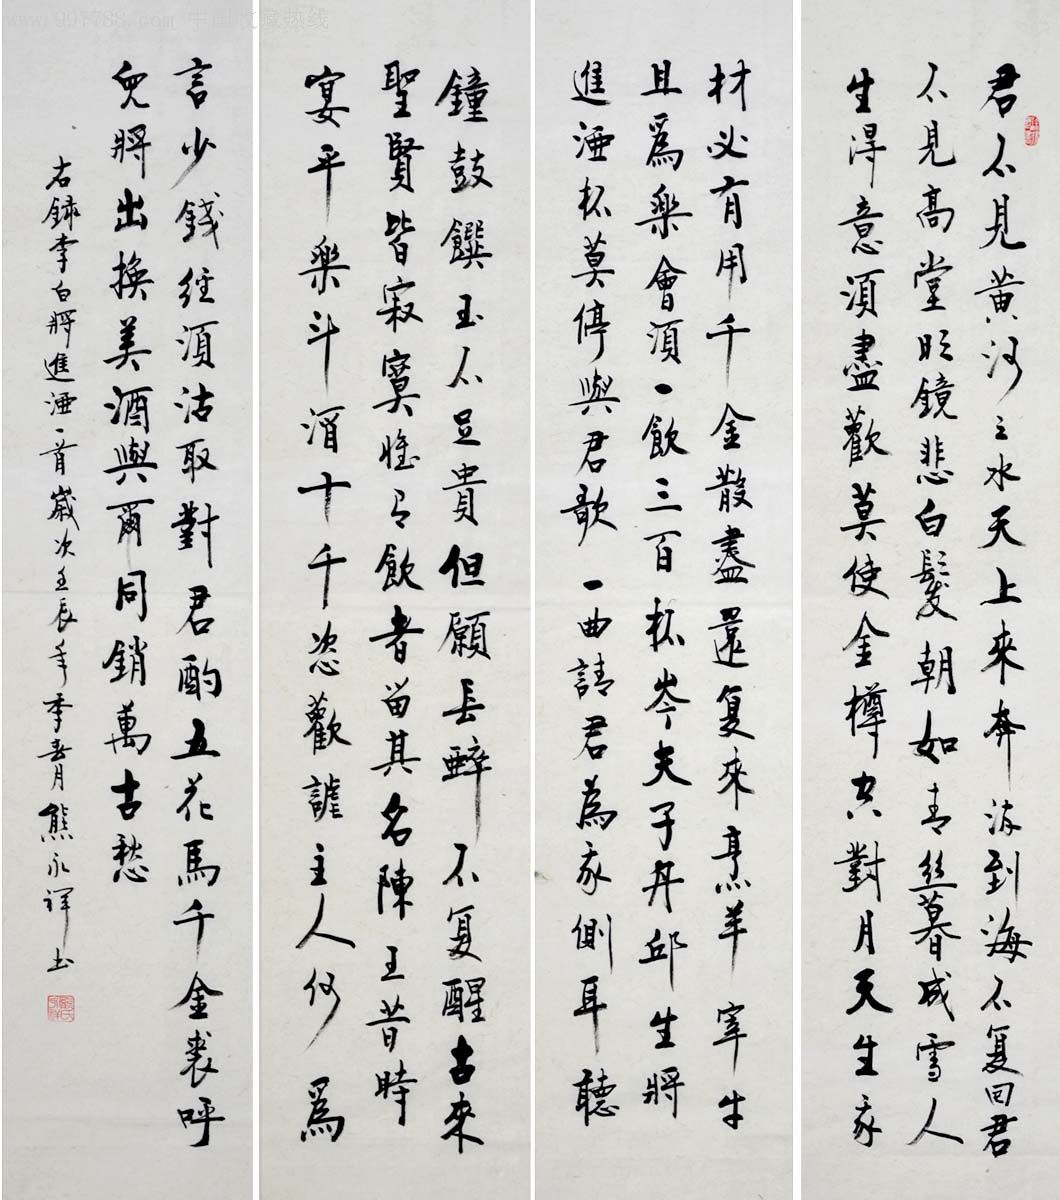 www.997788.com 中国收藏热线
君不見黃河之水天上來奔流到海不复回君
不見高堂明鏡悲白髮朝如青絲暮成雪人
生得意須盡歡莫使金樽空對月天生我
材必有用千金散盡還复來烹羊宰牛
且爲樂會須一飲三百杯岑夫子丹邱生將
進酒杯莫停與君歌一曲請君為我側耳聽
鐘鼓饌玉不足貴但願長醉不复醒古來
聖賢皆寂寞惟有飲者留其名陳王昔時
宴平樂斗酒十千恣歡謔主人何爲
言少錢經須沽取對君酌五花馬千金裘呼
兒將出換美酒與爾同銷萬古愁
右錄李白將進酒一首歲次壬辰年季春月熊永祥书